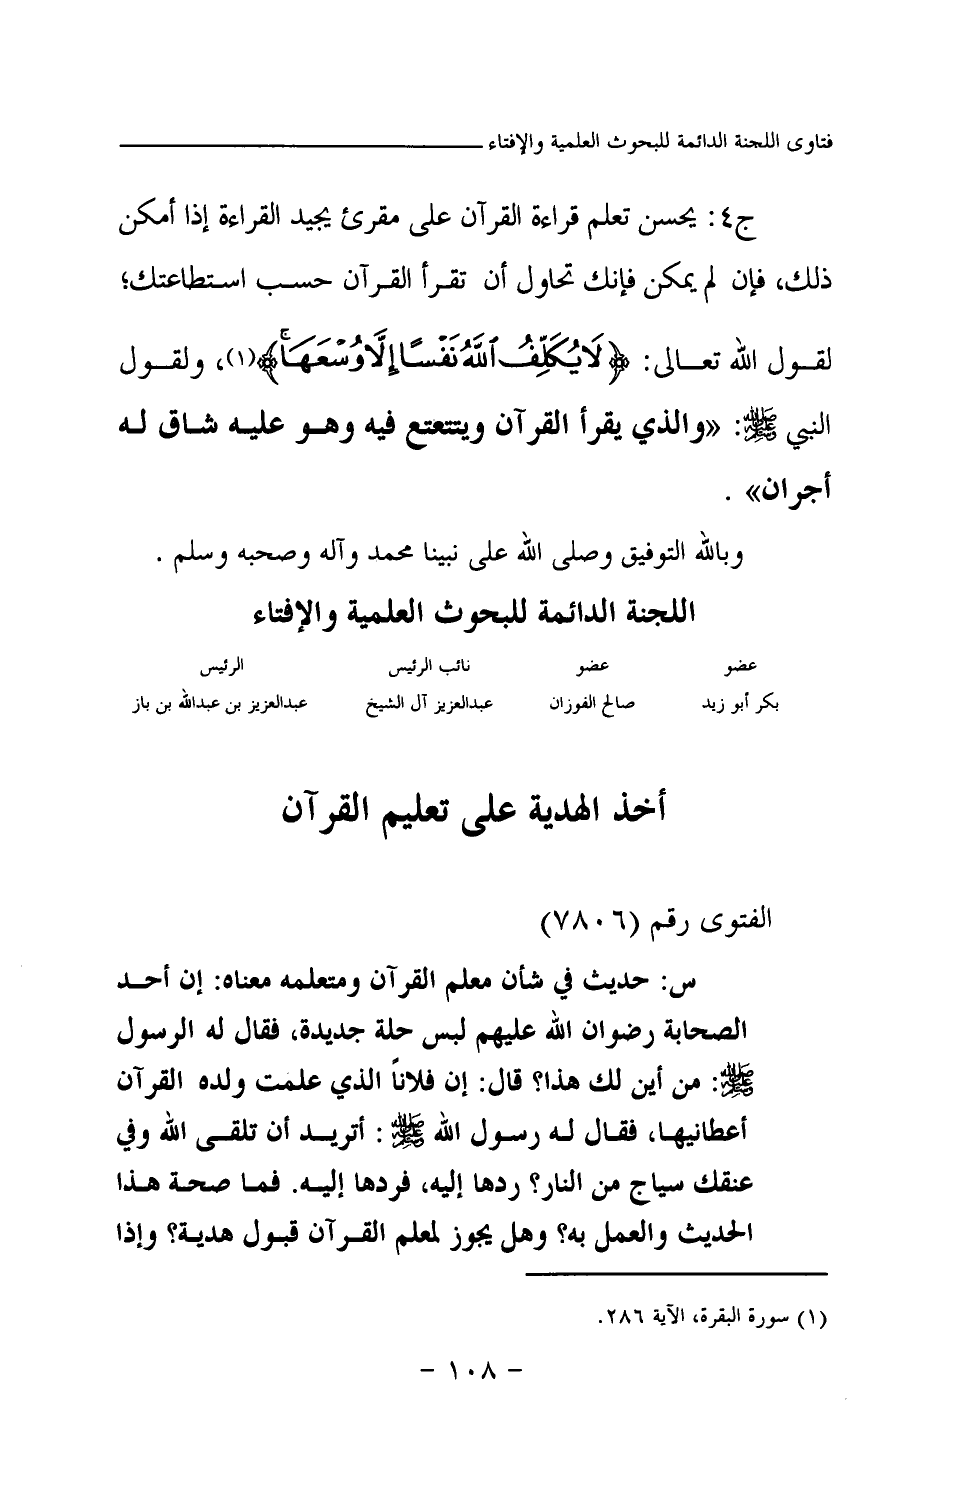 فتاوى اللجنة الدائمة للبحوث العلمية والإفتاء
ج٤: يحسن تعلم قراءة القرآن على مقرئ يجيد القراءة إذا أمكن
ذلك، فإن لم يمكن فإنك تحاول أن تقرأ القرآن حسب استطاعتك؛
لقول الله تعالى: ﴿لَا يُكَلِّفُ ٱللَّهُ نَفْسًا إِلَّا وُسْعَهَاۚ﴾(١)، ولقول
النبي ﷺ: «والذي يقرأ القرآن ويتتعتع فيه وهو عليه شاق له
أجران» .
وبالله التوفيق وصلى الله على نبينا محمد وآله وصحبه وسلم .
اللجنة الدائمة للبحوث العلمية والإفتاء
عضو عضو نائب الرئيس الرئيس
بكر أبو زيد صالح الفوزان عبدالعزيز آل الشيخ عبدالعزيز بن عبدالله بن باز
أخذ الهدية على تعليم القرآن
الفتوى رقم (٧٨٠٦)
س: حديث في شأن معلم القرآن ومتعلمه معناه: إن أحد
الصحابة رضوان الله عليهم لبس حلة جديدة، فقال له الرسول
ﷺ: من أين لك هذا؟ قال: إن فلاناً الذي علمت ولده القرآن
أعطانيها، فقال له رسول الله ﷺ : أتريد أن تلقى الله وفي
عنقك سياج من النار؟ ردها إليه، فردها إليه. فما صحة هذا
الحديث والعمل به؟ وهل يجوز لمعلم القرآن قبول هدية؟ وإذا
(١) سورة البقرة، الآية ٢٨٦.
- ١٠٨ -